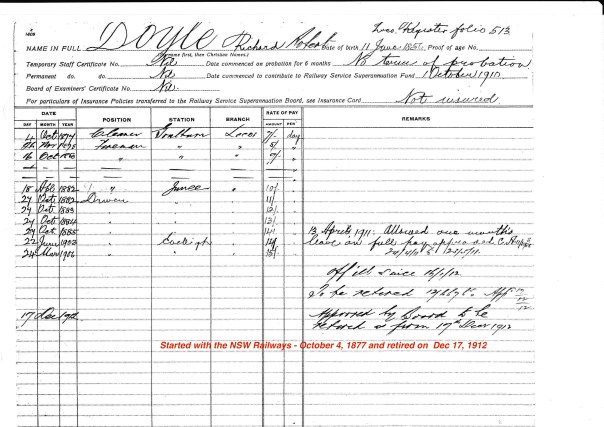 Loco. Register folio 513
NAME IN FULL DOYLE Richard Robert Date of birth 11 June 1855 Proof of age No.
(Surname first, then Christian Names.)
Temporary Staff Certificate No. Nil Date commenced on probation for 6 months No term of probation
Permanent do. do. Nil. Date commenced to contribute to Railway Service Superannuation Fund 1 October 1910
Board of Examiners' Certificate No. Nil.
For particulars of Insurance Policies transferred to the Railway Service Superannuation Board, see Insurance Card Not insured
DATE POSITION STATION BRANCH RATE OF PAY REMARKS
DAY MONTH YEAR AMOUNT PER
4 Oct Cleaner Loco 7/- day
Fireman " " 8/- "
16 Oct " " " 9/- "
18 1882 " Junee " 10/- "
24 Oct 1882 Driver " " 11/- "
24 Oct 1883 " " " 12/- "
24 Oct 1884 " " " 13/- "
24 Oct 1885 " " " 14/- " 13 April 1911: Allowed one month's
22 June 1903 " Eveleigh " leave on full pay approved
24 Mar " " " 15/- "
Off ill since
To be retired
17 Dec 1912 Approved by Board to be
retired as from 17th Decr 1912
Started with the NSW Railways - October 4, 1877 and retired on Dec 17, 1912